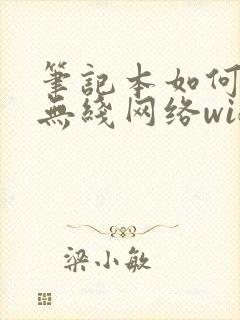 筆記本如何
無綫网络wi
梁小敏